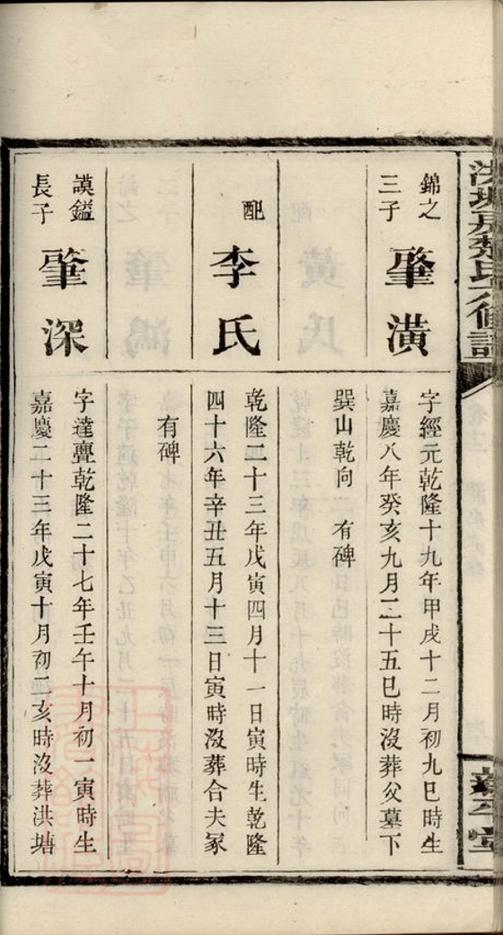 錦之
三子
肇潢
字經元乾隆十九年甲戌十二月初九巳時生
嘉慶八年癸亥九月二十五巳時沒葬父墓下
巽山乾向　有碑
配
李氏
乾隆二十三年戊寅四月十一日寅時生乾隆
四十六年辛丑五月十三日寅時沒葬合夫冢
有碑
謨鎰
長子
肇深
字達亹乾隆二十七年壬午十月初一寅時生
嘉慶二十三年戊寅十月初二亥時沒葬洪塘